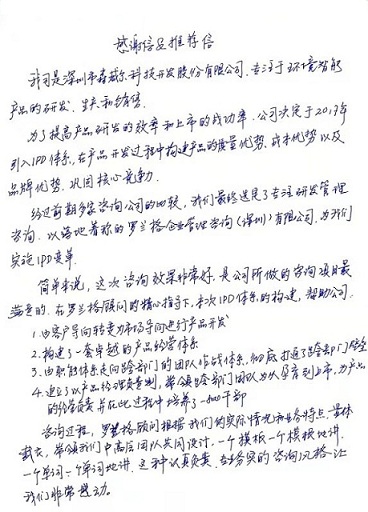 感谢信及推荐信
我司是深圳市森威尔科技开发股份有限公司，专注于环境智能
产品的研发、生产和销售。
为了提高产品研发的效率和上市的成功率，公司决定于2017年
引入IPD体系，在产品开发过程中构建产品的质量优势、成本优势以及
品牌优势，巩固核心竞争力。
经过前期多家咨询公司的比较，我们最终选定了专注研发管理
咨询，以落地着称的罗兰格企业管理咨询（深圳）有限公司，为我们
实施IPD变革。
简单来说，这次咨询效果非常好，是公司所做的咨询项目最
满意的，在罗兰格顾问的精心指导下，本次IPD体系的构建，帮助公司：
1.由客户导向转变为市场导向进行产品开发
2.构建了一套卓越的产品经营体系
3.由职能体系走向跨部门的团队作战体系，彻底打通了跨部门壁垒
4.建立了以产品经理负责制，带领跨部门团队为从孕育到上市，为产品
的经营负责并在此过程中培养了一批干部
咨询过程，罗兰格顾问根据我们的实际情况和业务特点，量体
裁衣，带领我们中高层团队共同设计，一个模板一个模板地讲，
一个单词一个单词地讲，这种认真负责、务实的咨询风格让
我们非常感动。